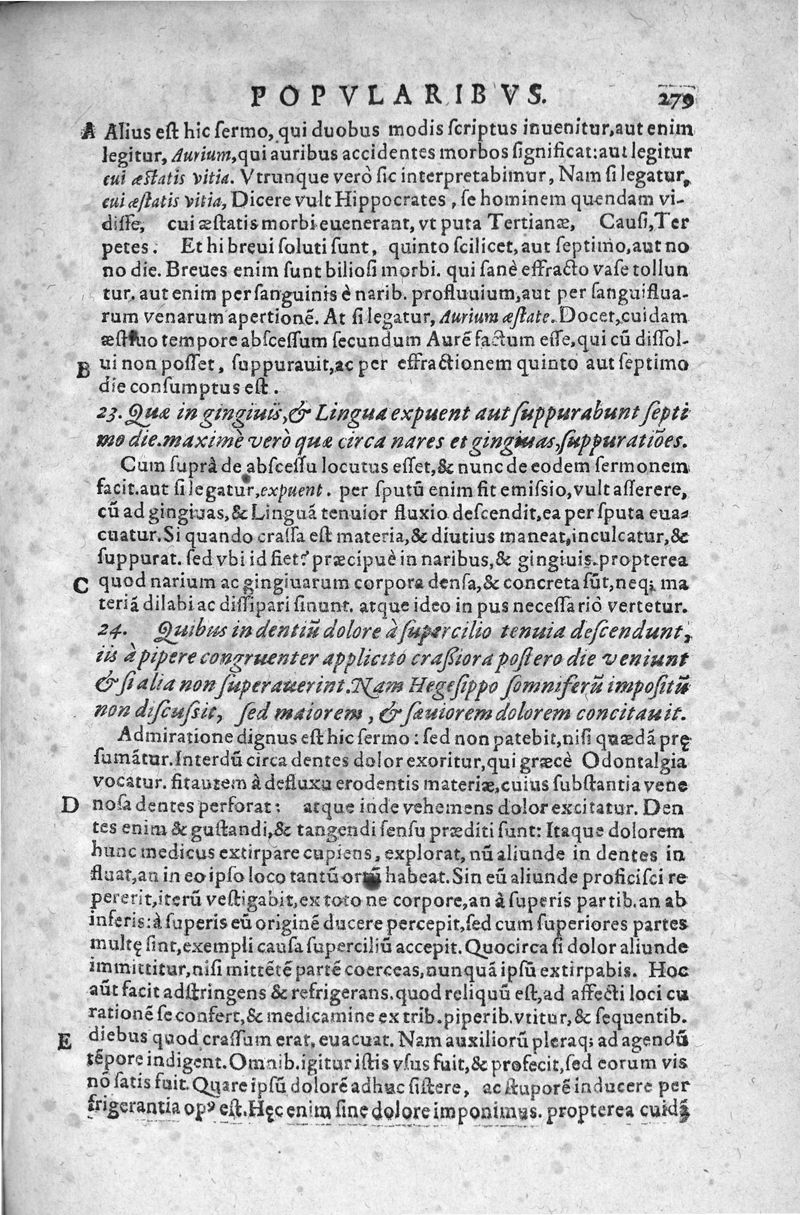 POPVLARIBVS. 279
A Alius est hic sermo, qui duobus modis scriptus inuenitur, aut enim
legitur, Aurium, qui auribus accidentes morbos significat: aut legitur
cui æstatis vitia. Vtrunque verò sic interpretabimur, Nam si legatur,
cui æstatis vitia, Dicere vult Hippocrates, se hominem quendam vi-
disse, cui æstatis morbi euenerant, vt puta Tertianæ, Causi, Ter
petes. Et hi breui soluti sunt, quinto scilicet, aut septimo, aut no
no die. Breues enim sunt biliosi morbi. qui sanè effracto vase tollun
tur. aut enim per sanguinis è narib. profluuium, aut per sanguiflua-
rum venarum apertionē. At si legatur, Aurium æstate. Docet, cuidam
æstiuo tempore abscessum secundum Aurē factum esse, qui cū dissol-
B ui non posset, suppurauit, ac per effractionem quinto aut septimo
die consumptus est.
23. Quæ in gingiuis, & Lingua expuent aut suppurabunt septi
mo die. maximè verò quæ circa nares et gingiuas, suppuratiōes.
Cum suprà de abscessu locutus esset, & nunc de eodem sermonem
facit. aut si legatur, expuent. per sputū enim fit emissio, vult asserere,
cū ad gingiuas, & Linguā tenuior fluxio descendit, ea per sputa eua-
cuatur. Si quando crassa est materia, & diutius maneat, inculcatur, &
suppurat. sed vbi id fiet? præcipuè in naribus, & gingiuis. propterea
C quod narium ac gingiuarum corpora densa, & concreta sūt, neq; ma
teriā dilabi ac dissipari sinunt. atque ideo in pus necessariò vertetur.
24. Quibus in dentiū dolore à supercilio tenuia descendunt,
iis à pipere congruenter applicito crassiora postero die veniunt
& si alia non superauerint. Nam Hegesippo somniferū impositū
non discussit, sed maiorem, & sæuiorem dolorem concitauit.
Admiratione dignus est hic sermo: sed non patebit, nisi quædā prę
sumātur. Interdū circa dentes dolor exoritur, qui græcè Odontalgia
vocatur. fit autem à defluxu erodentis materiæ, cuius substantia vene
D nosa dentes perforat: atque inde vehemens dolor excitatur. Den
tes enim & gustandi, & tangendi sensu præditi sunt: Itaque dolorem
hunc medicus extirpare cupiens, explorat, nū aliunde in dentes in
fluat, an in eo ipso loco tantū ortū habeat. Sin eū aliunde proficisci re
pererit, iterū vestigabit, ex toto ne corpore, an à superis partib. an ab
inferis: à superis eū originē ducere percepit, sed cum superiores partes
multę sint, exempli causa superciliū accepit. Quocirca si dolor aliunde
immittitur, nisi mittētē partē coerceas, nunquā ipsū extirpabis. Hoc
aūt facit adstringens & refrigerans. quod reliquū est, ad affecti loci cu
rationē se confert, & medicamine ex trib. piperib. vtitur, & sequentib.
E diebus quod crassum erat, euacuat. Nam auxiliorū pleraq; ad agendū
tēpore indigent. Omnib. igitur istis vsus fuit, & profecit, sed eorum vis
nō satis fuit. Quare ipsū dolorē adhuc sistere, ac stuporē inducere per
frigerantia opꝰ est. Hęc enim sine dolore imponimus. propterea cuidā